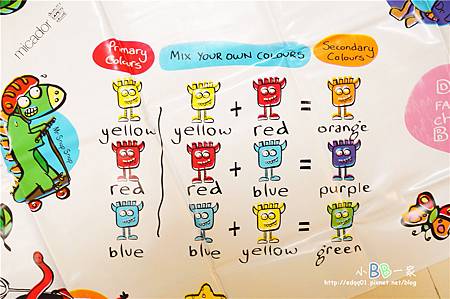 micador
Primary
Colours
MIX YOUR OWN COLOURS
Secondary
Colours
yellow
yellow + red = orange
red
red + blue = purple
blue
blue + yellow = green
小BB一家
http://edqq01.pixnet.net/blog